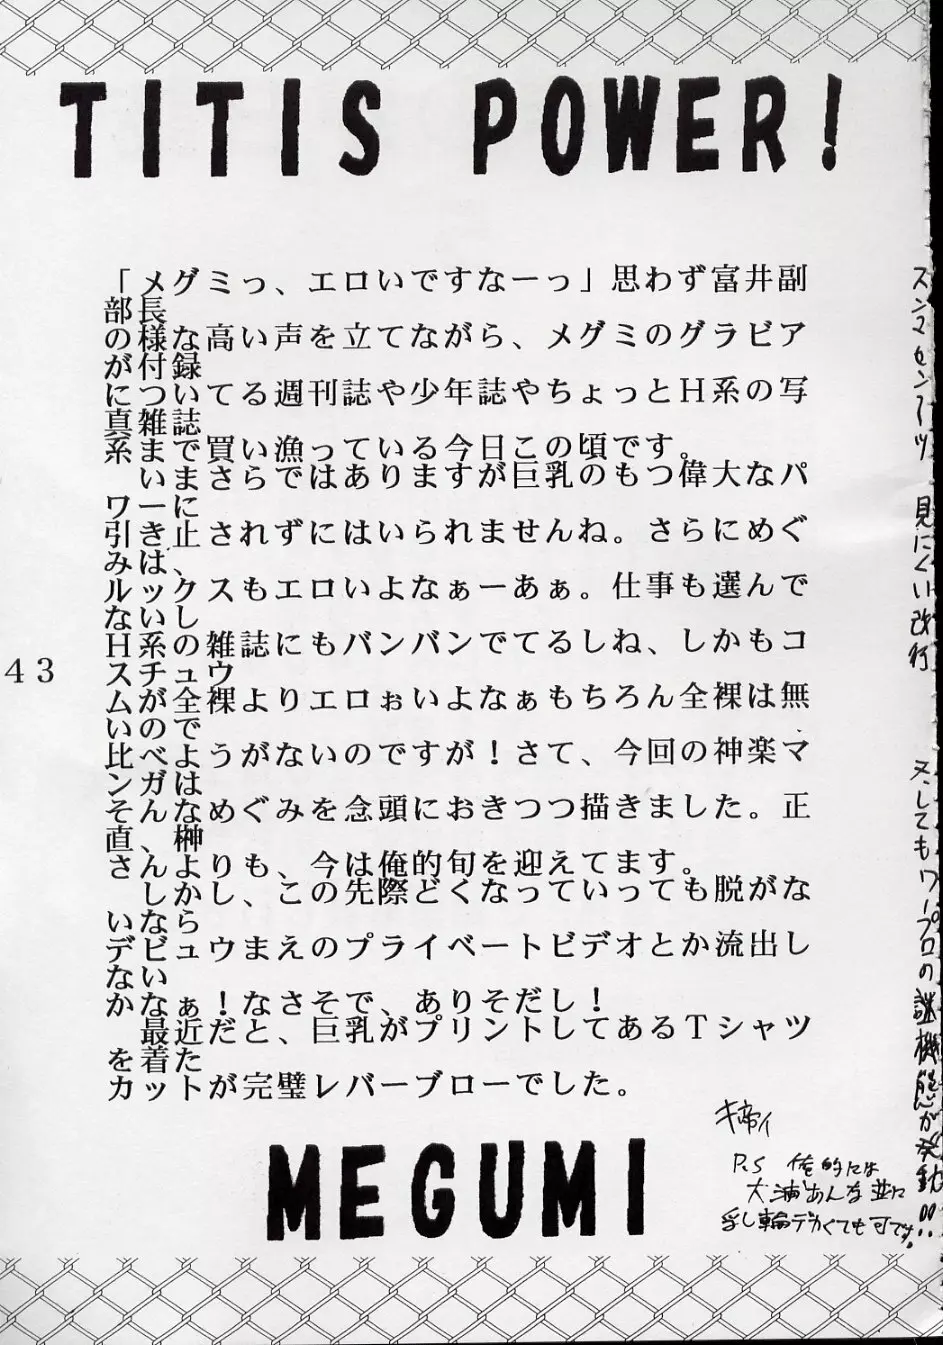 TITIS POWER!
「メグミっ、エロいですなーっ」思わず富井副
部長
の様な高い声を立てながら、メグミのグラビア
が付録
についてる週刊誌や少年誌やちょっとＨ系の写
真雑誌
系まで買い漁っている今日この頃です。
いまさらではありますが巨乳のもつ偉大なパ
ワーに
引き止されずにはいられませんね。さらにめぐ
みは、
ルックスもエロいよなぁーあぁ。仕事も選んで
ないし
Ｈ系の雑誌にもバンバンでてるしね、しかもコ
スチュウ
ムが全裸よりエロぉいよなぁもちろん全裸は無
いので
比べようがないのですが！さて、今回の神楽マ
ンガは
そんなめぐみを念頭におきつつ描きました。正
直、榊
さんよりも、今は俺的旬を迎えてます。
しかし、この先際どくなっていっても脱がな
いなら
デビュウまえのプライベートビデオとか流出し
ない
かなぁ！なさそで、ありそだし！
最近だと、巨乳がプリントしてあるＴシャツ
を着た
カットが完璧レバーブローでした。
P.S 俺的には
大浦あんな並に
乳し輪デカくても可です。
MEGUMI
43
スンマセンアツ 見にくい改行
又してもワープロの謎機能が発動!!